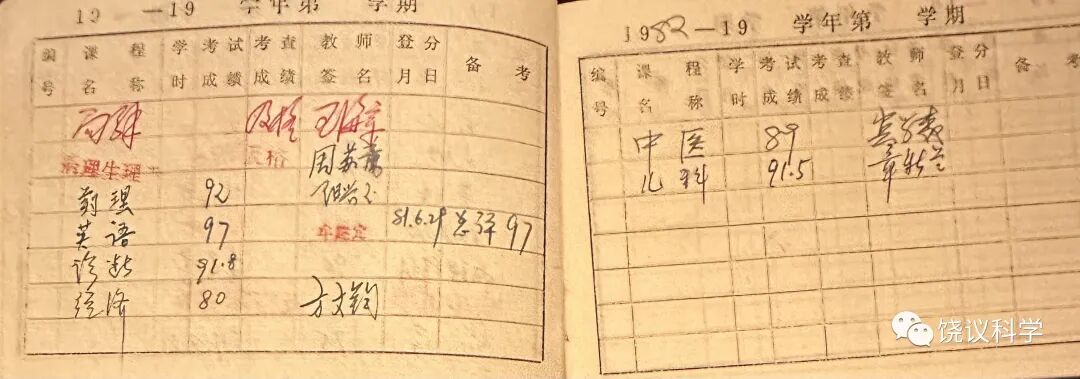 19 —19 学年第 学期
编号 课程名称 学时 考试成绩 考查成绩 教师签名 登分月日 备考
局解 及格
病理生理 及格
药理 92
英语 97 81.6.29 总评97
诊断 91.8
经济 80 方文钧
1982—19 学年第 学期
编号 课程名称 学时 考试成绩 考查成绩 教师签名 登分月日 备考
中医 89
儿科 91.5
饶议科学